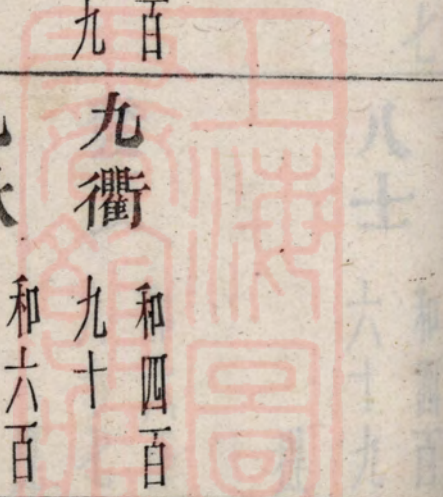 百
九
九衢
和四百
九十
和六百
上海圖